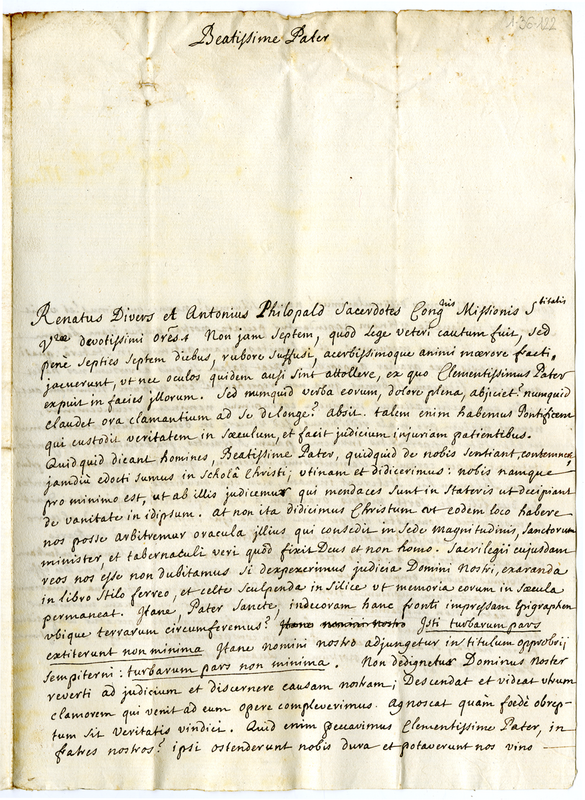 1-36-122
Beatissime Pater
Renatus Divers et Antonius Philopald Sacerdotes Congnis Missionis Stitatis
Vræ devotissimi orēs. Non jam septem, quod Lege veteri cautum fuit, sed
penè septies septem diebus, rubore suffusi, acerbissimoque animi mœrore fracti,
jacuerunt, ut nec oculos quidem ausi sint attollere, ex quo Clementissimus Pater
expuit in facies jllorum. Sed nunquid verba eorum, dolore plena, abjiciet? nunquid
claudet ora clamantium ad se de longe? absit. talem enim habemus Pontificem
qui custodit veritatem in Sæculum, et facit judicium injuriam patientibus.
Quidquid dicant homines, Beatissime Pater, quidquid de nobis sentiant, contemnere
jamdiù edocti sumus in scholâ Christi; utinam et didicerimus: nobis namque
pro minimo est, ut ab illis judicemur qui mendaces sunt in stateris ut decipiant
de vanitate in idipsum. at non ita didicimus Christum ut eodem loco habere
nos posse arbitremur oracula jllius qui consedit in sede magnitudinis, Sanctorum
minister, et tabernaculi veri quod fixit Deus et non homo. Sacrilegii cujusdam
reos nos esse non dubitamus si despexerimus judicia Domini Nostri, exaranda
in libro Stilo ferreo, et celte sculpenda in silice ut memoria eorum in sæcula
permaneat. Jtane, Pater Sancte, indecoram hanc fronti impressam Epigraphen
ubique terrarum circumferemus? Jtane nomini nostro Isti turbarum pars
extiterunt non minima Jtane nomini nostro adjungetur in titulum opprobrij
sempiterni: turbarum pars non minima. Non dedignetur Dominus noster
reverti ad judicium et discernere causam nostram; Descendat et videat utrum
clamorem qui venit ad eum opere compleverimus. Agnoscat quàm fœdè obrep-
tum sit veritatis vindici. Quid enim peccavimus Clementissime Pater, in
fratres nostros? ipsi ostenderunt nobis dura et potaverunt nos vino